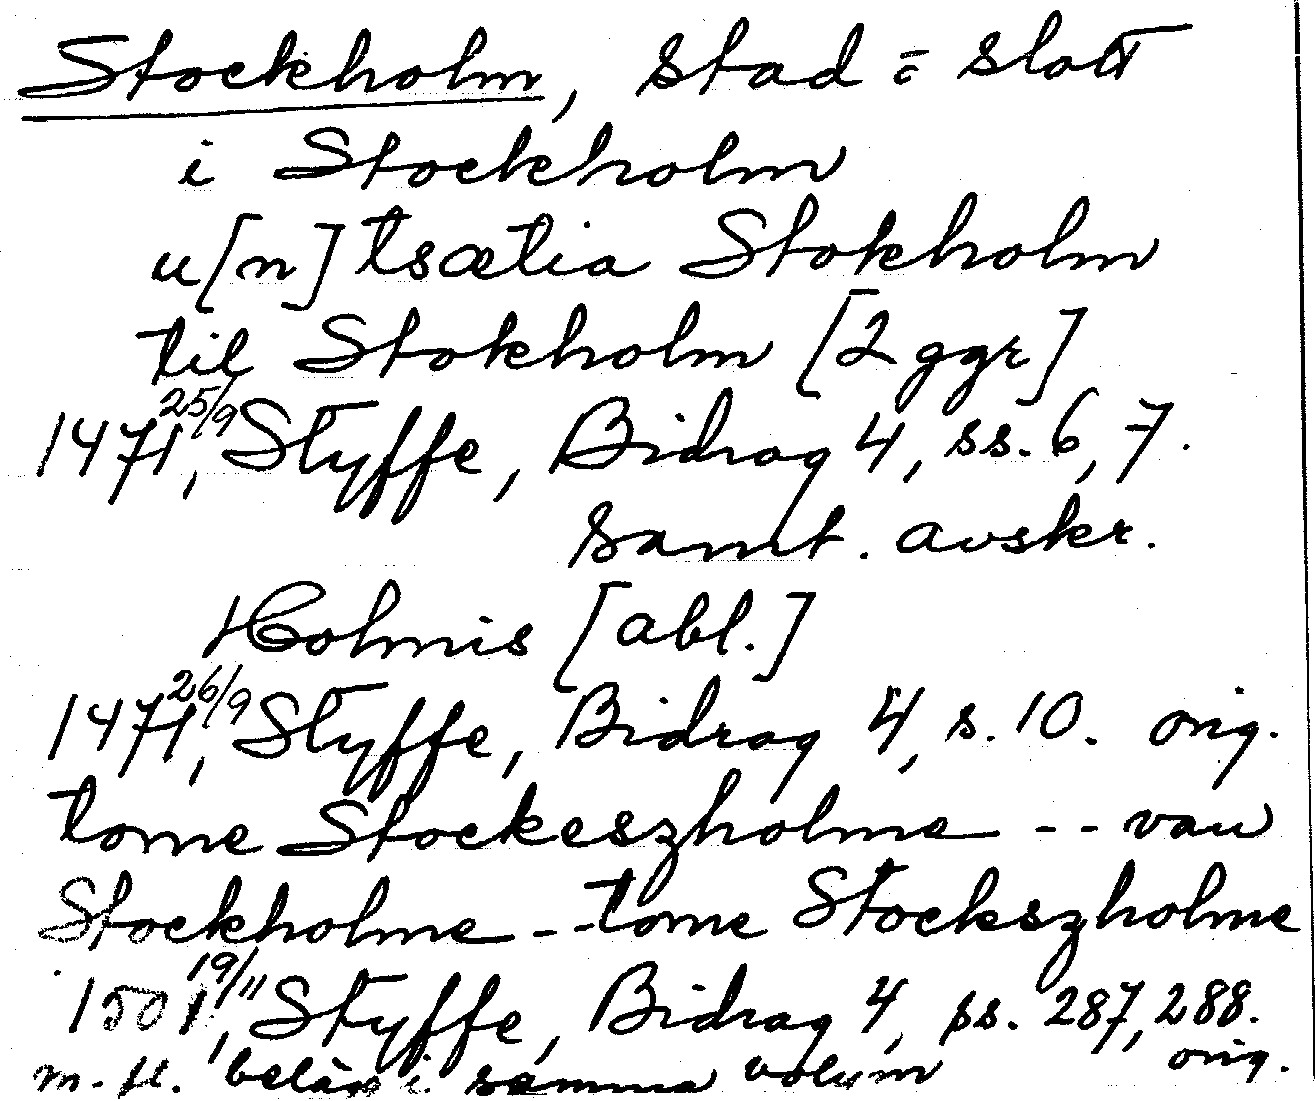 Stockholm, stad o slott
i Stockholm
u[n] tsætia Stokholm
til Stokholm [2 ggr]
1471 25/9, Styffe, Bidrag 4, ss. 6, 7.
samt. avskr.
Holmis [abl.]
1471 26/9, Styffe, Bidrag 4, s. 10. orig.
tome Stockeszholme -- van
Stockholme -- tome Stockszholme
1501 19/11, Styffe, Bidrag 4, ss. 287, 288.
orig.
m. fl. belägg i samma volym